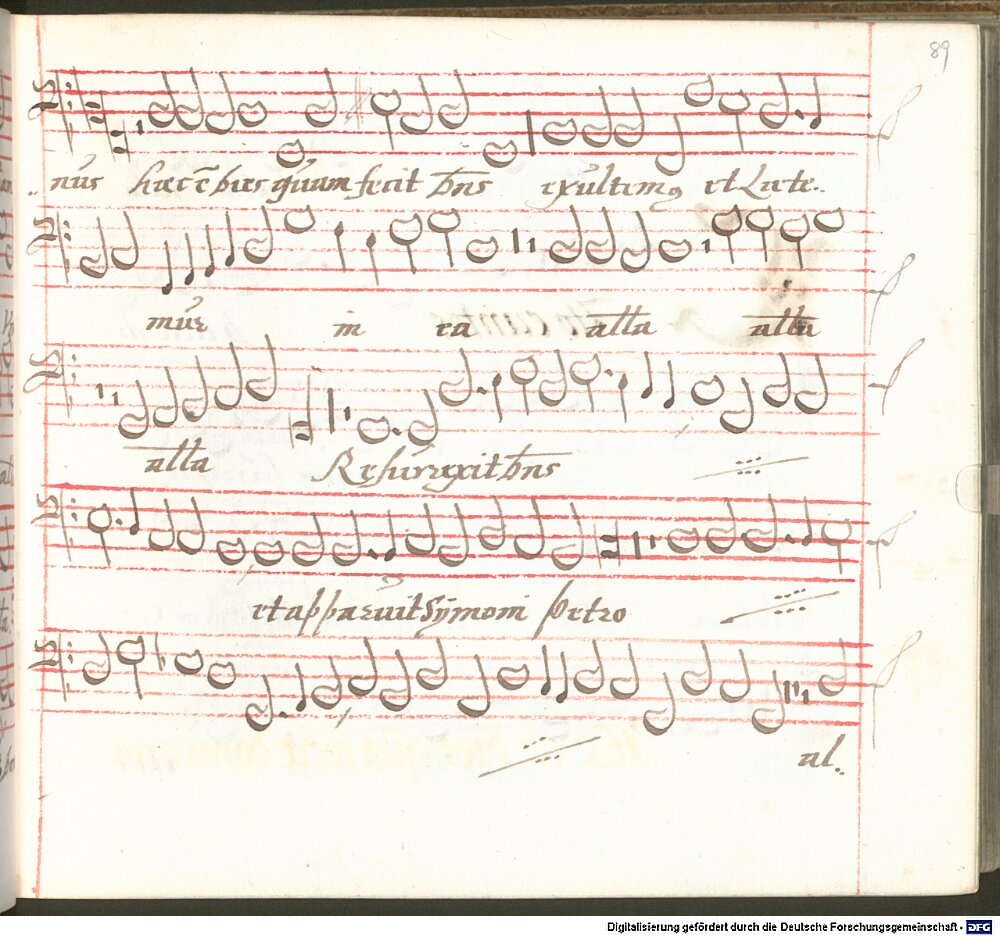 89
..nus hæc ē dies quam fecit dn̄s exultemꝰ et Læte..
mur in ea alla alla
alla Resurrexit dn̄s
et apparuit Symoni petro
al..
Digitalisierung gefördert durch die Deutsche Forschungsgemeinschaft - DFG